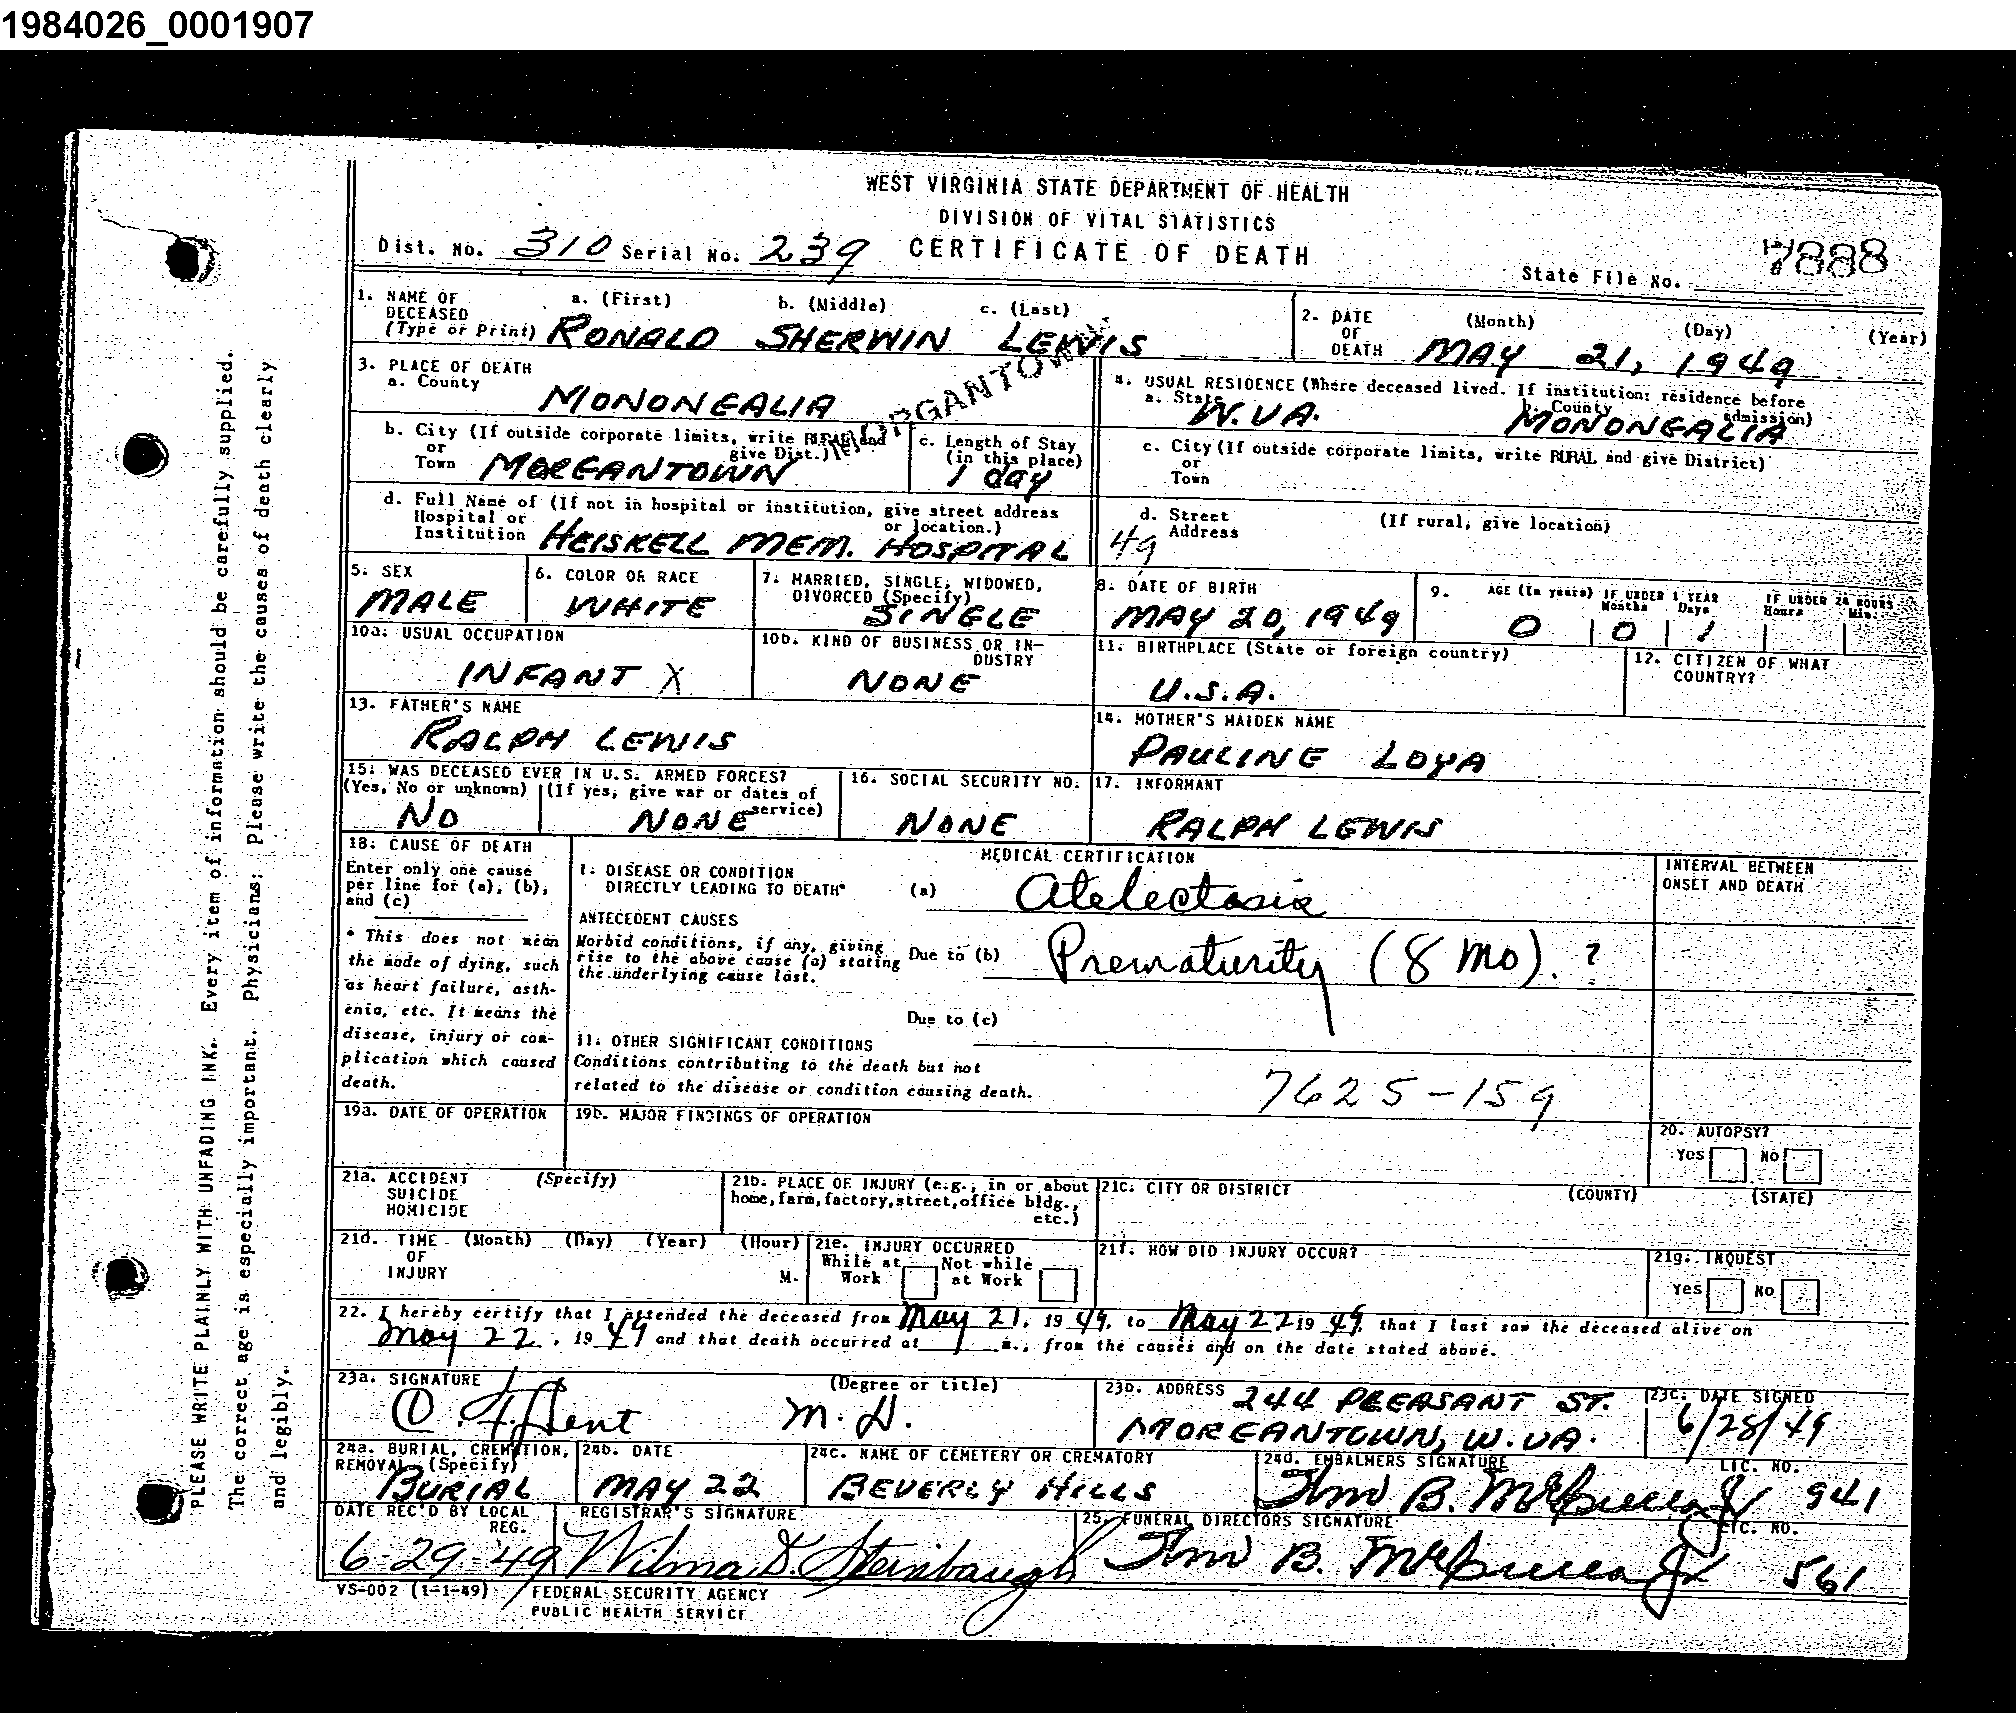 1984026_0001907
WEST VIRGINIA STATE DEPARTMENT OF HEALTH
DIVISION OF VITAL STATISTICS
Dist. No. 310 Serial No. 239 CERTIFICATE OF DEATH
State File No. 7888
1. NAME OF DECEASED (Type or Print) a. (First) b. (Middle) c. (Last)
RONALD SHERWIN LEWIS
2. DATE OF DEATH (Month) (Day) (Year)
MAY 21, 1949
3. PLACE OF DEATH
a. County
MONONGALIA
MORGANTOWN
4. USUAL RESIDENCE (Where deceased lived. If institution: residence before admission)
a. State W.VA. b. County MONONGALIA
b. City (If outside corporate limits, write RURAL and give Dist.)
or Town MORGANTOWN
c. Length of Stay (in this place)
1 day
c. City (If outside corporate limits, write RURAL and give District)
or
Town
d. Full Name of (If not in hospital or institution, give street address or location.)
Hospital or
Institution HEISKELL MEM. HOSPITAL
d. Street Address (If rural, give location)
49
5. SEX
MALE
6. COLOR OR RACE
WHITE
7. MARRIED, SINGLE, WIDOWED, DIVORCED (Specify)
SINGLE
8. DATE OF BIRTH
MAY 20, 1949
9. AGE (In years) IF UNDER 1 YEAR Months Days IF UNDER 24 HOURS Hours Min.
0 0 1
10a. USUAL OCCUPATION
INFANT X
10b. KIND OF BUSINESS OR INDUSTRY
NONE
11. BIRTHPLACE (State or foreign country)
U.S.A.
12. CITIZEN OF WHAT COUNTRY?
13. FATHER'S NAME
RALPH LEWIS
14. MOTHER'S MAIDEN NAME
PAULINE LOYA
15. WAS DECEASED EVER IN U.S. ARMED FORCES?
(Yes, No or unknown) (If yes, give war or dates of service)
NO NONE
16. SOCIAL SECURITY NO.
NONE
17. INFORMANT
RALPH LEWIS
18. CAUSE OF DEATH
Enter only one cause per line for (a), (b), and (c)
* This does not mean the mode of dying, such as heart failure, asthenia, etc. It means the disease, injury or complication which caused death.
MEDICAL CERTIFICATION
INTERVAL BETWEEN ONSET AND DEATH
I. DISEASE OR CONDITION DIRECTLY LEADING TO DEATH* (a) Atelectasis
ANTECEDENT CAUSES
Morbid conditions, if any, giving rise to the above cause (a) stating the underlying cause last.
Due to (b) Prematurity (8 mo). ?
Due to (c)
II. OTHER SIGNIFICANT CONDITIONS
Conditions contributing to the death but not related to the disease or condition causing death.
7625-159
19a. DATE OF OPERATION
19b. MAJOR FINDINGS OF OPERATION
20. AUTOPSY?
Yes No
21a. ACCIDENT SUICIDE HOMICIDE (Specify)
21b. PLACE OF INJURY (e.g., in or about home, farm, factory, street, office bldg., etc.)
21c. CITY OR DISTRICT (COUNTY) (STATE)
21d. TIME OF INJURY (Month) (Day) (Year) (Hour) M.
21e. INJURY OCCURRED
While at Work Not while at Work
21f. HOW DID INJURY OCCUR?
21g. INQUEST
Yes No
22. I hereby certify that I attended the deceased from May 21, 1949, to May 22 1949, that I last saw the deceased alive on
May 22, 1949 and that death occurred at m., from the causes and on the date stated above.
23a. SIGNATURE (Degree or title)
M.D.
23b. ADDRESS 244 PLEASANT ST.
MORGANTOWN, W.VA.
23c. DATE SIGNED
6/28/49
24a. BURIAL, CREMATION, REMOVAL (Specify)
BURIAL
24b. DATE
MAY 22
24c. NAME OF CEMETERY OR CREMATORY
BEVERLY HILLS
24d. EMBALMERS SIGNATURE LIC. NO.
941
DATE REC'D BY LOCAL REG.
6-29-49
REGISTRAR'S SIGNATURE
Wilma D. Steinbaugh
25. FUNERAL DIRECTORS SIGNATURE LIC. NO.
561
VS-002 (1-1-49) FEDERAL SECURITY AGENCY
PUBLIC HEALTH SERVICE
PLEASE WRITE PLAINLY WITH UNFADING INK. Every item of information should be carefully supplied.
The correct age is especially important. Physicians: Please write the causes of death clearly
and legibly.